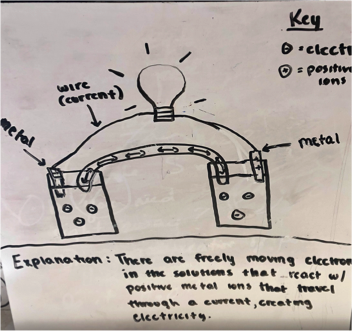 Key
⊖ = electr
⊕ = positive
ions
wire
(current)
metal
metal
Explanation: There are freely moving electron
in the solutions that react w/
positive metal ions that travel
through a current, creating
electricity.